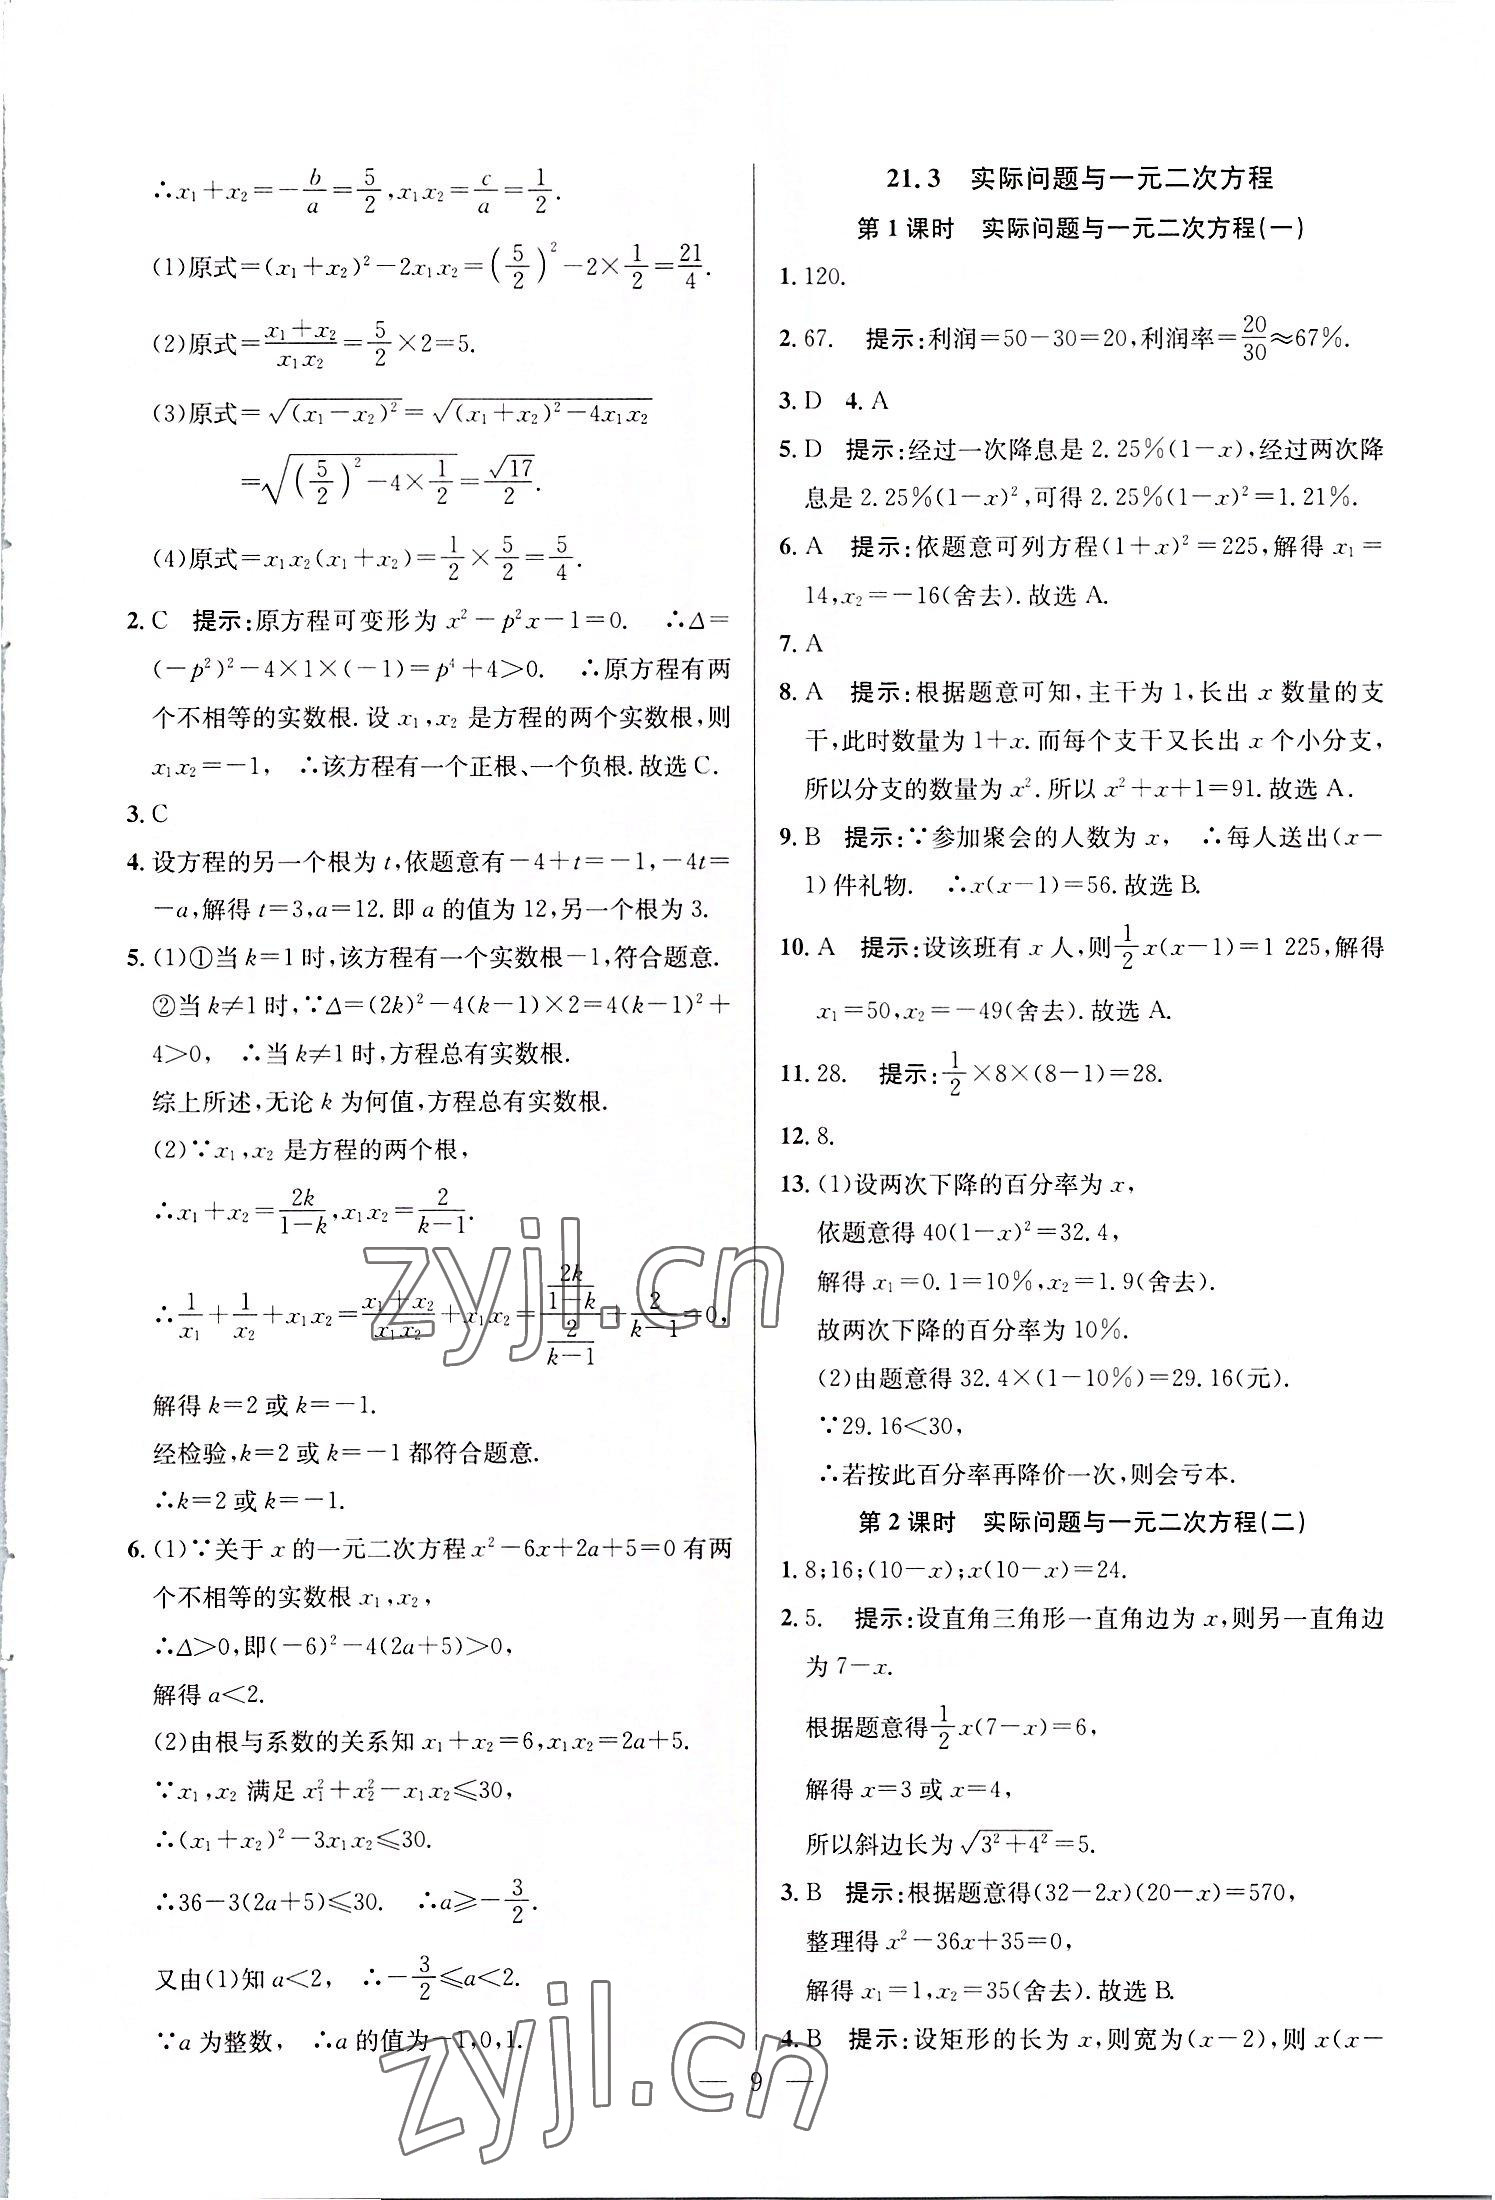 ∴x₁+x₂=-b/a=5/2,x₁x₂=c/a=1/2.
(1)原式=(x₁+x₂)²-2x₁x₂=(5/2)²-2×1/2=21/4.
(2)原式=(x₁+x₂)/(x₁x₂)=5/2×2=5.
(3)原式=√((x₁-x₂)²)=√((x₁+x₂)²-4x₁x₂)
=√((5/2)²-4×1/2)=√17/2.
(4)原式=x₁x₂(x₁+x₂)=1/2×5/2=5/4.
2. C 提示:原方程可变形为 x²-p²x-1=0. ∴Δ=
(-p²)²-4×1×(-1)=p⁴+4>0. ∴原方程有两
个不相等的实数根.设 x₁,x₂ 是方程的两个实数根,则
x₁x₂=-1, ∴该方程有一个正根、一个负根.故选 C.
3. C
4. 设方程的另一个根为 t,依题意有-4+t=-1,-4t=
-a,解得 t=3,a=12.即 a 的值为 12,另一个根为 3.
5. (1)①当 k=1 时,该方程有一个实数根-1,符合题意.
②当 k≠1 时,∵Δ=(2k)²-4(k-1)×2=4(k-1)²+
4>0, ∴当 k≠1 时,方程总有实数根.
综上所述,无论 k 为何值,方程总有实数根.
(2)∵x₁,x₂ 是方程的两个根,
∴x₁+x₂=2k/(1-k),x₁x₂=2/(k-1).
∴1/x₁+1/x₂+x₁x₂=(x₁+x₂)/(x₁x₂)+x₁x₂=(2k/(1-k))/(2/(k-1))+2/(k-1)=0,
解得 k=2 或 k=-1.
经检验,k=2 或 k=-1 都符合题意.
∴k=2 或 k=-1.
6. (1)∵关于 x 的一元二次方程 x²-6x+2a+5=0 有两
个不相等的实数根 x₁,x₂,
∴Δ>0,即(-6)²-4(2a+5)>0,
解得 a<2.
(2)由根与系数的关系知 x₁+x₂=6,x₁x₂=2a+5.
∵x₁,x₂ 满足 x₁²+x₂²-x₁x₂≤30,
∴(x₁+x₂)²-3x₁x₂≤30.
∴36-3(2a+5)≤30. ∴a≥-3/2.
又由(1)知 a<2, ∴-3/2≤a<2.
∵a 为整数, ∴a 的值为-1,0,1.
21.3 实际问题与一元二次方程
第 1 课时 实际问题与一元二次方程(一)
1. 120.
2. 67. 提示:利润=50-30=20,利润率=20/30≈67%.
3. D 4. A
5. D 提示:经过一次降息是 2.25%(1-x),经过两次降
息是 2.25%(1-x)²,可得 2.25%(1-x)²=1.21%.
6. A 提示:依题意可列方程(1+x)²=225,解得 x₁=
14,x₂=-16(舍去).故选 A.
7. A
8. A 提示:根据题意可知,主干为 1,长出 x 数量的支
干,此时数量为 1+x.而每个支干又长出 x 个小分支,
所以分支的数量为 x².所以 x²+x+1=91.故选 A.
9. B 提示:∵参加聚会的人数为 x, ∴每人送出(x-
1)件礼物. ∴x(x-1)=56.故选 B.
10. A 提示:设该班有 x 人,则1/2x(x-1)=1 225,解得
x₁=50,x₂=-49(舍去).故选 A.
11. 28. 提示:1/2×8×(8-1)=28.
12. 8.
13. (1)设两次下降的百分率为 x,
依题意得 40(1-x)²=32.4,
解得 x₁=0.1=10%,x₂=1.9(舍去).
故两次下降的百分率为 10%.
(2)由题意得 32.4×(1-10%)=29.16(元).
∵29.16<30,
∴若按此百分率再降价一次,则会亏本.
第 2 课时 实际问题与一元二次方程(二)
1. 8;16;(10-x);x(10-x)=24.
2. 5. 提示:设直角三角形一直角边为 x,则另一直角边
为 7-x.
根据题意得1/2x(7-x)=6,
解得 x=3 或 x=4,
所以斜边长为√(3²+4²)=5.
3. B 提示:根据题意得(32-2x)(20-x)=570,
整理得 x²-36x+35=0,
解得 x₁=1,x₂=35(舍去).故选 B.
4. B 提示:设矩形的长为 x,则宽为(x-2),则 x(x-
— 9 —
zyjl.cn
zyjl.cn